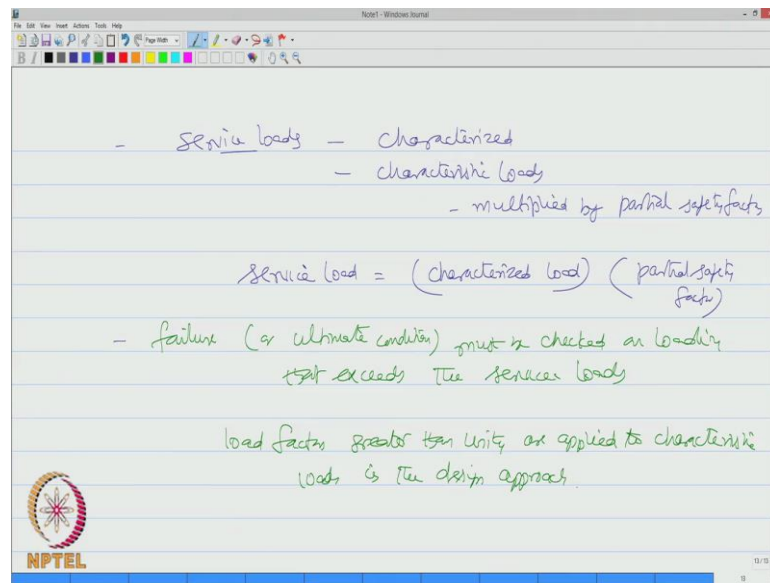 Note1 - Windows Journal
File Edit View Insert Actions Tools Help
Page Width
B I
- service loads - characterized
- characteristic loads
- multiplied by partial safety factors
service load = (characterized load) (partial safety
factor)
- failure (or ultimate condition) must be checked on loading
that exceeds the service loads
load factors greater than unity are applied to characteristic
loads is the design approach.
NPTEL
13/13
13